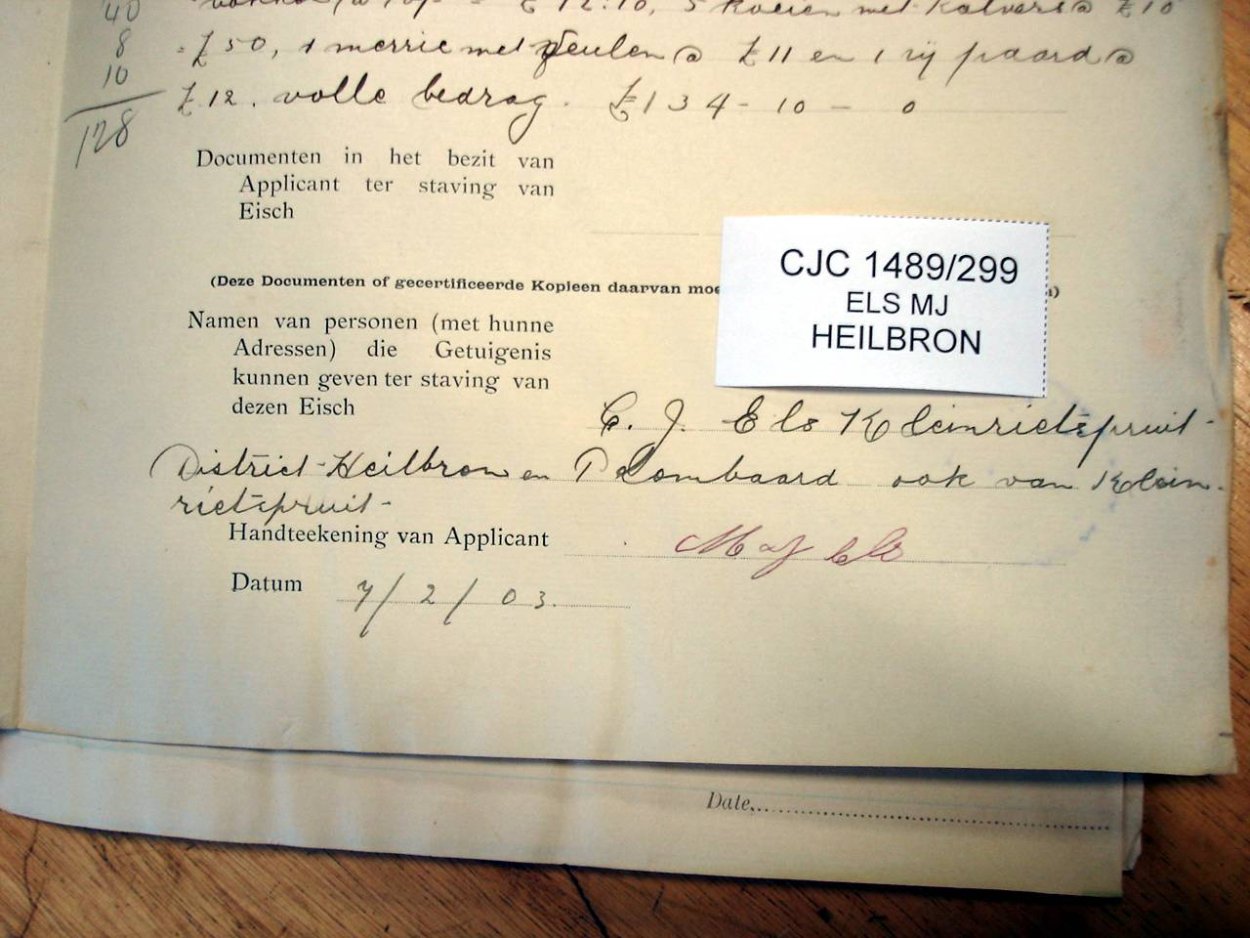 40
8
10
128
£12:10, 5 koeien met kalvers @ £10
= £50, 1 merrie met veulen @ £11 en 1 rij paard @
£12. volle bedrag. £134-10-0
Documenten in het bezit van
Applicant ter staving van
Eisch
(Deze Documenten of gecertificeerde Kopieen daarvan
CJC 1489/299
ELS MJ
HEILBRON
Namen van personen (met hunne
Adressen) die Getuigenis
kunnen geven ter staving van
dezen Eisch
C. J. Els Kleinrietspruit-
District-Heilbron en P Lombaard ook van Klein-
rietspruit-
Handteekening van Applicant
Els
Datum 7/2/03.
Date